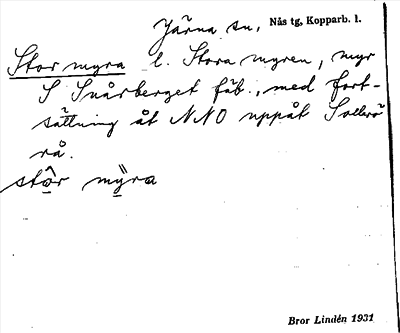 Järna sn, Nås tg, Kopparb. l.
Stormyra l. Stora myren, myr
S Snårberget fäb., med fort-
sättning åt NNO uppåt Sollerö
rå.
stôr mÿra
Bror Lindén 1931